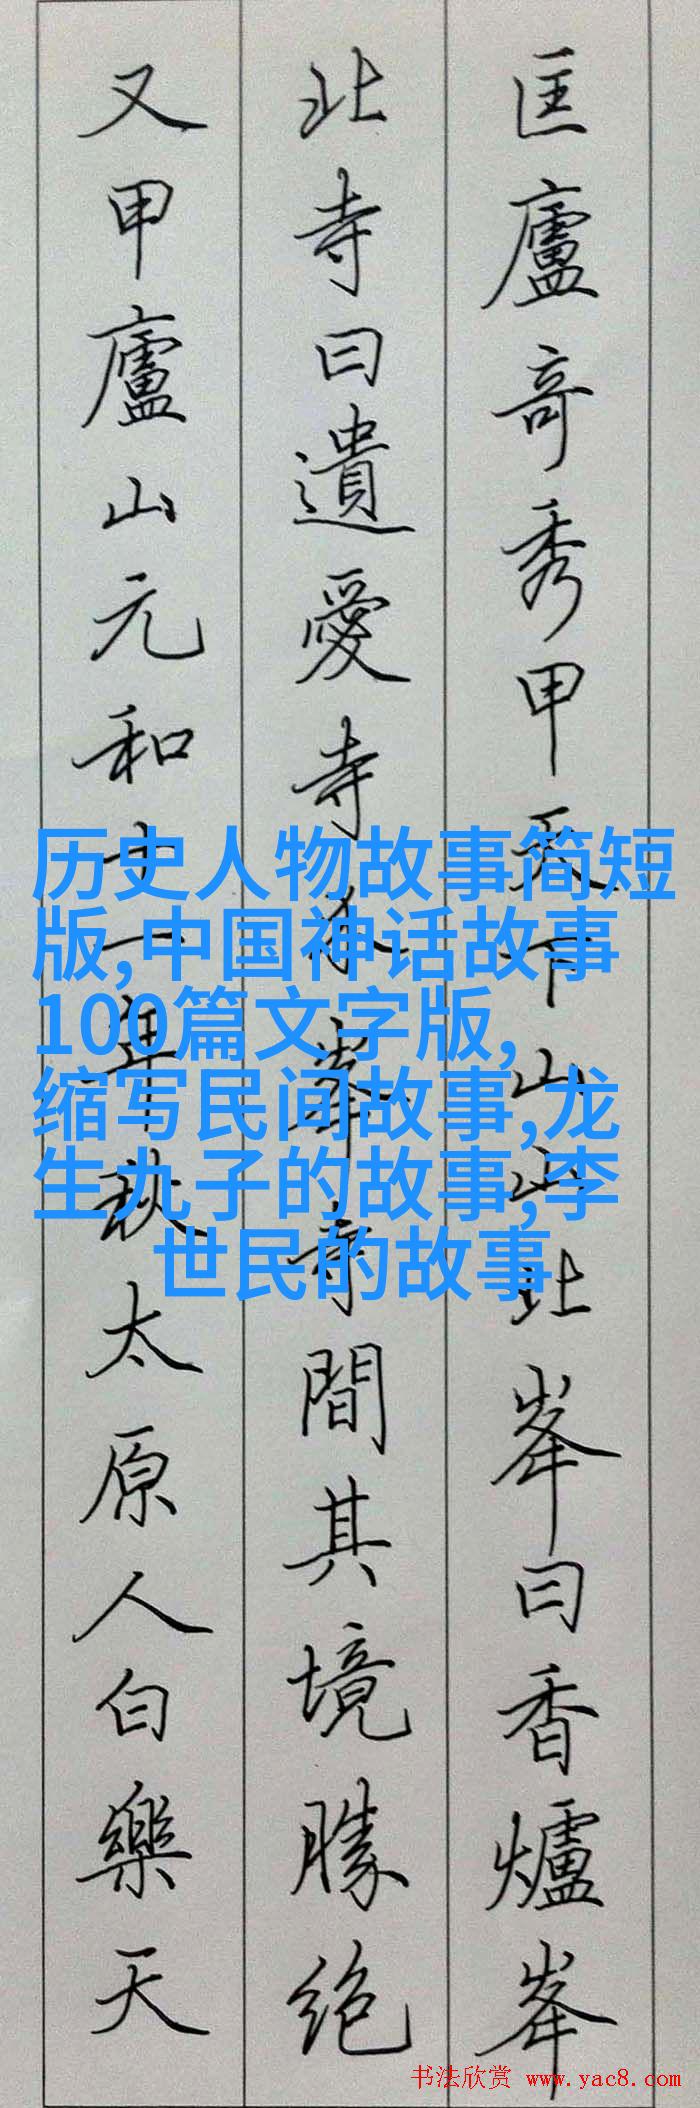 匡廬奇秀甲天下山山北峯曰香爐峯
北寺曰遺愛寺介峯寺間其境勝絶
又甲廬山元和十一年秋太原人白樂天
历史人物故事简短
版,中国神话故事
100篇文字版,
缩写民间故事,龙
生九子的故事,李
世民的故事
书法欣赏 www.yac8.com